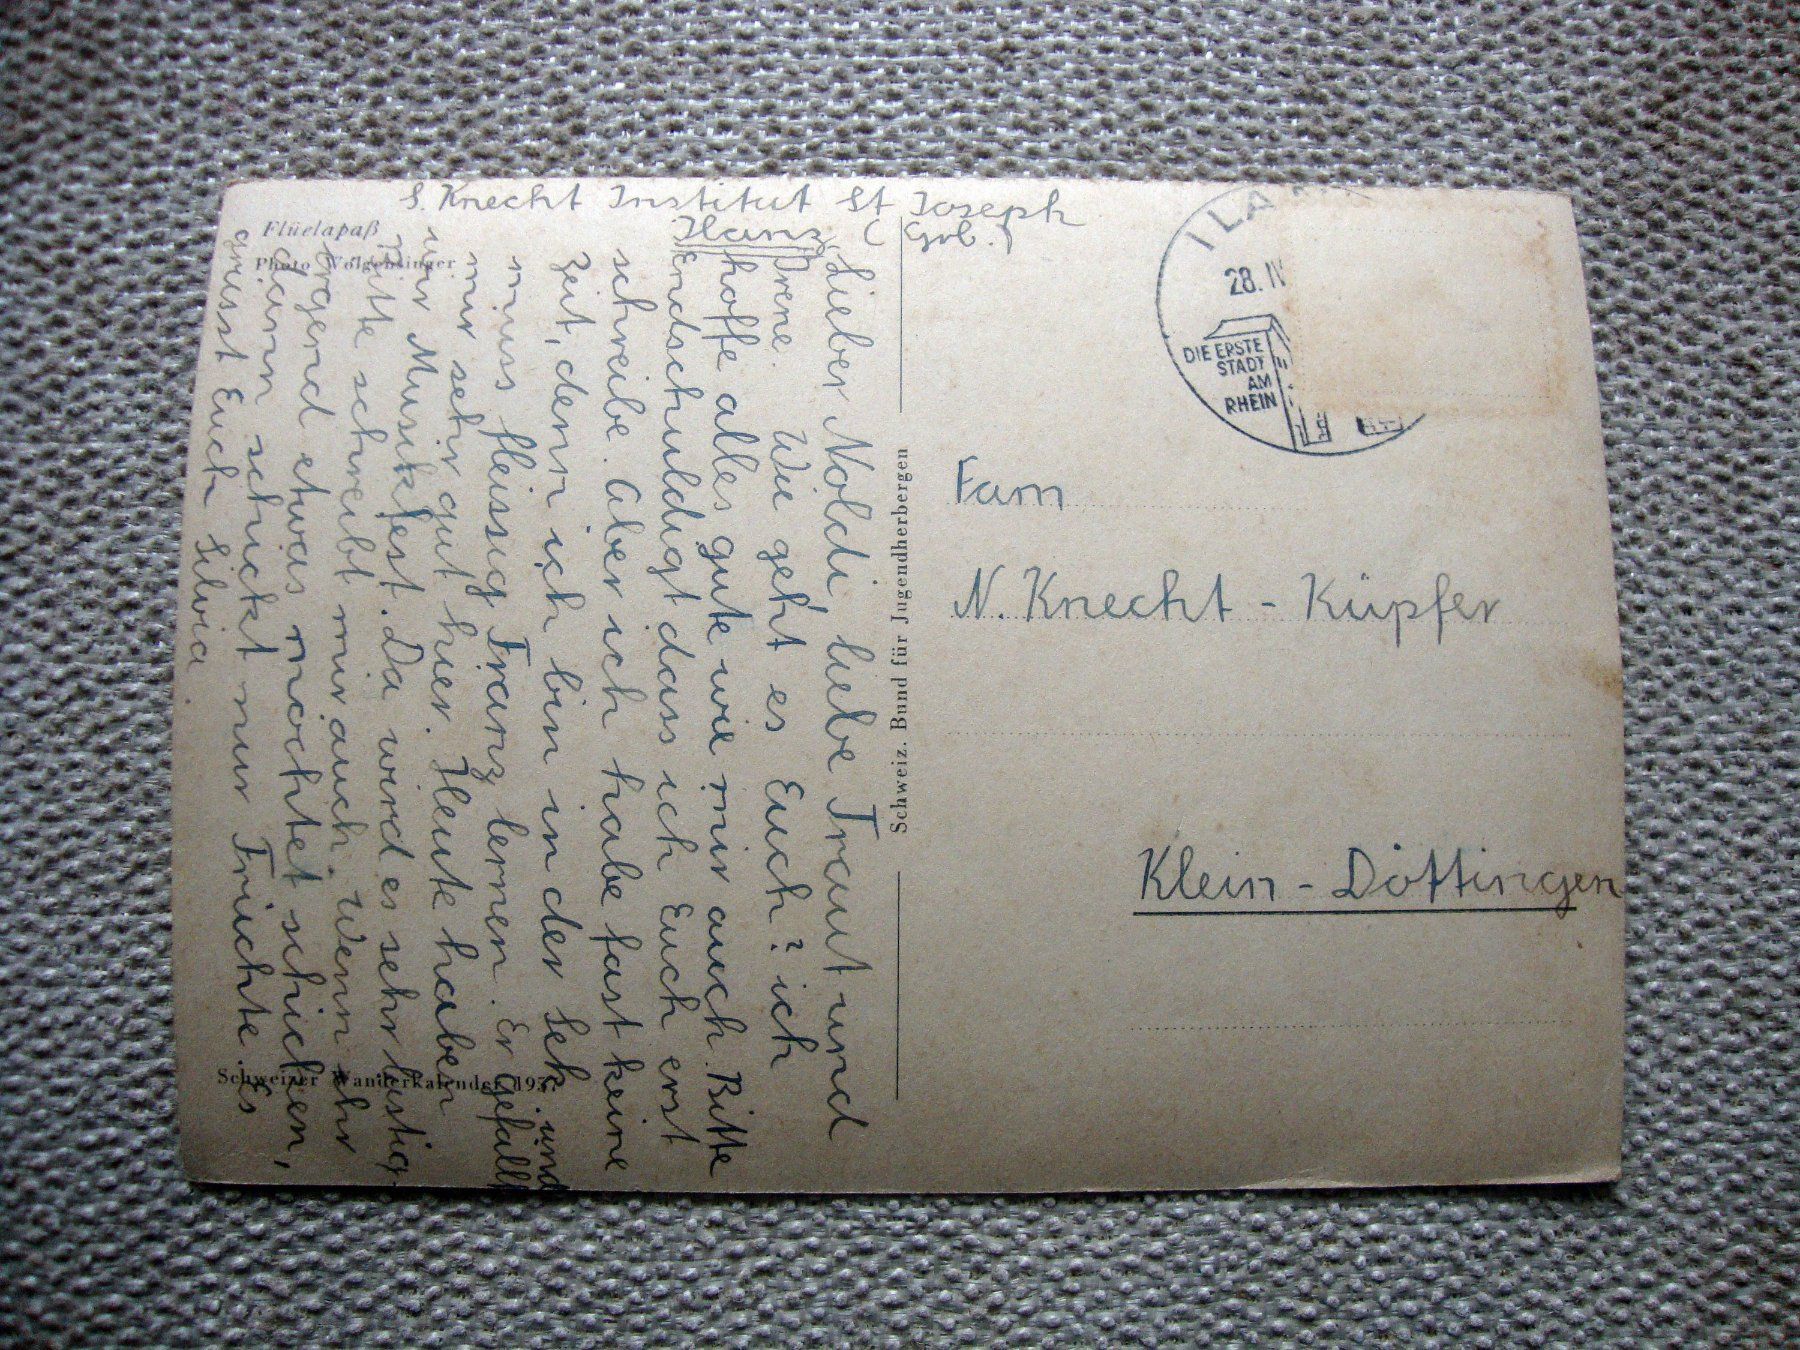 S. Knecht Institut St Joseph
Ilanz (Grb.)
Flüelapaß
Photo Wolgensinger
Lieber Noldi, liebe Traut und
Irene. Wie geht es Euch? ich
hoffe alles gute wie mir auch. Bitte
Endschuldigt dass ich Euch erst
schreibe. Aber ich habe fast keine
Zeit, denn ich bin in der Sek. und
muss fleissig Franz lernen. Er gefällt
mir sehr gut hier. Heute haben
wir Musikfest. Da wird es sehr lustig.
Bitte schreibt mir auch. Wenn ihr
irgend etwas möchtet schicken,
dann schickt nur Früchte. Es
grüsst Euch Silvia.
Schweizer Wanderkalender 193
Schweiz. Bund für Jugendherbergen
28. IV
DIE ERSTE
STADT
AM
RHEIN
Fam
N. Knecht - Küpfer
Klein - Döttingen